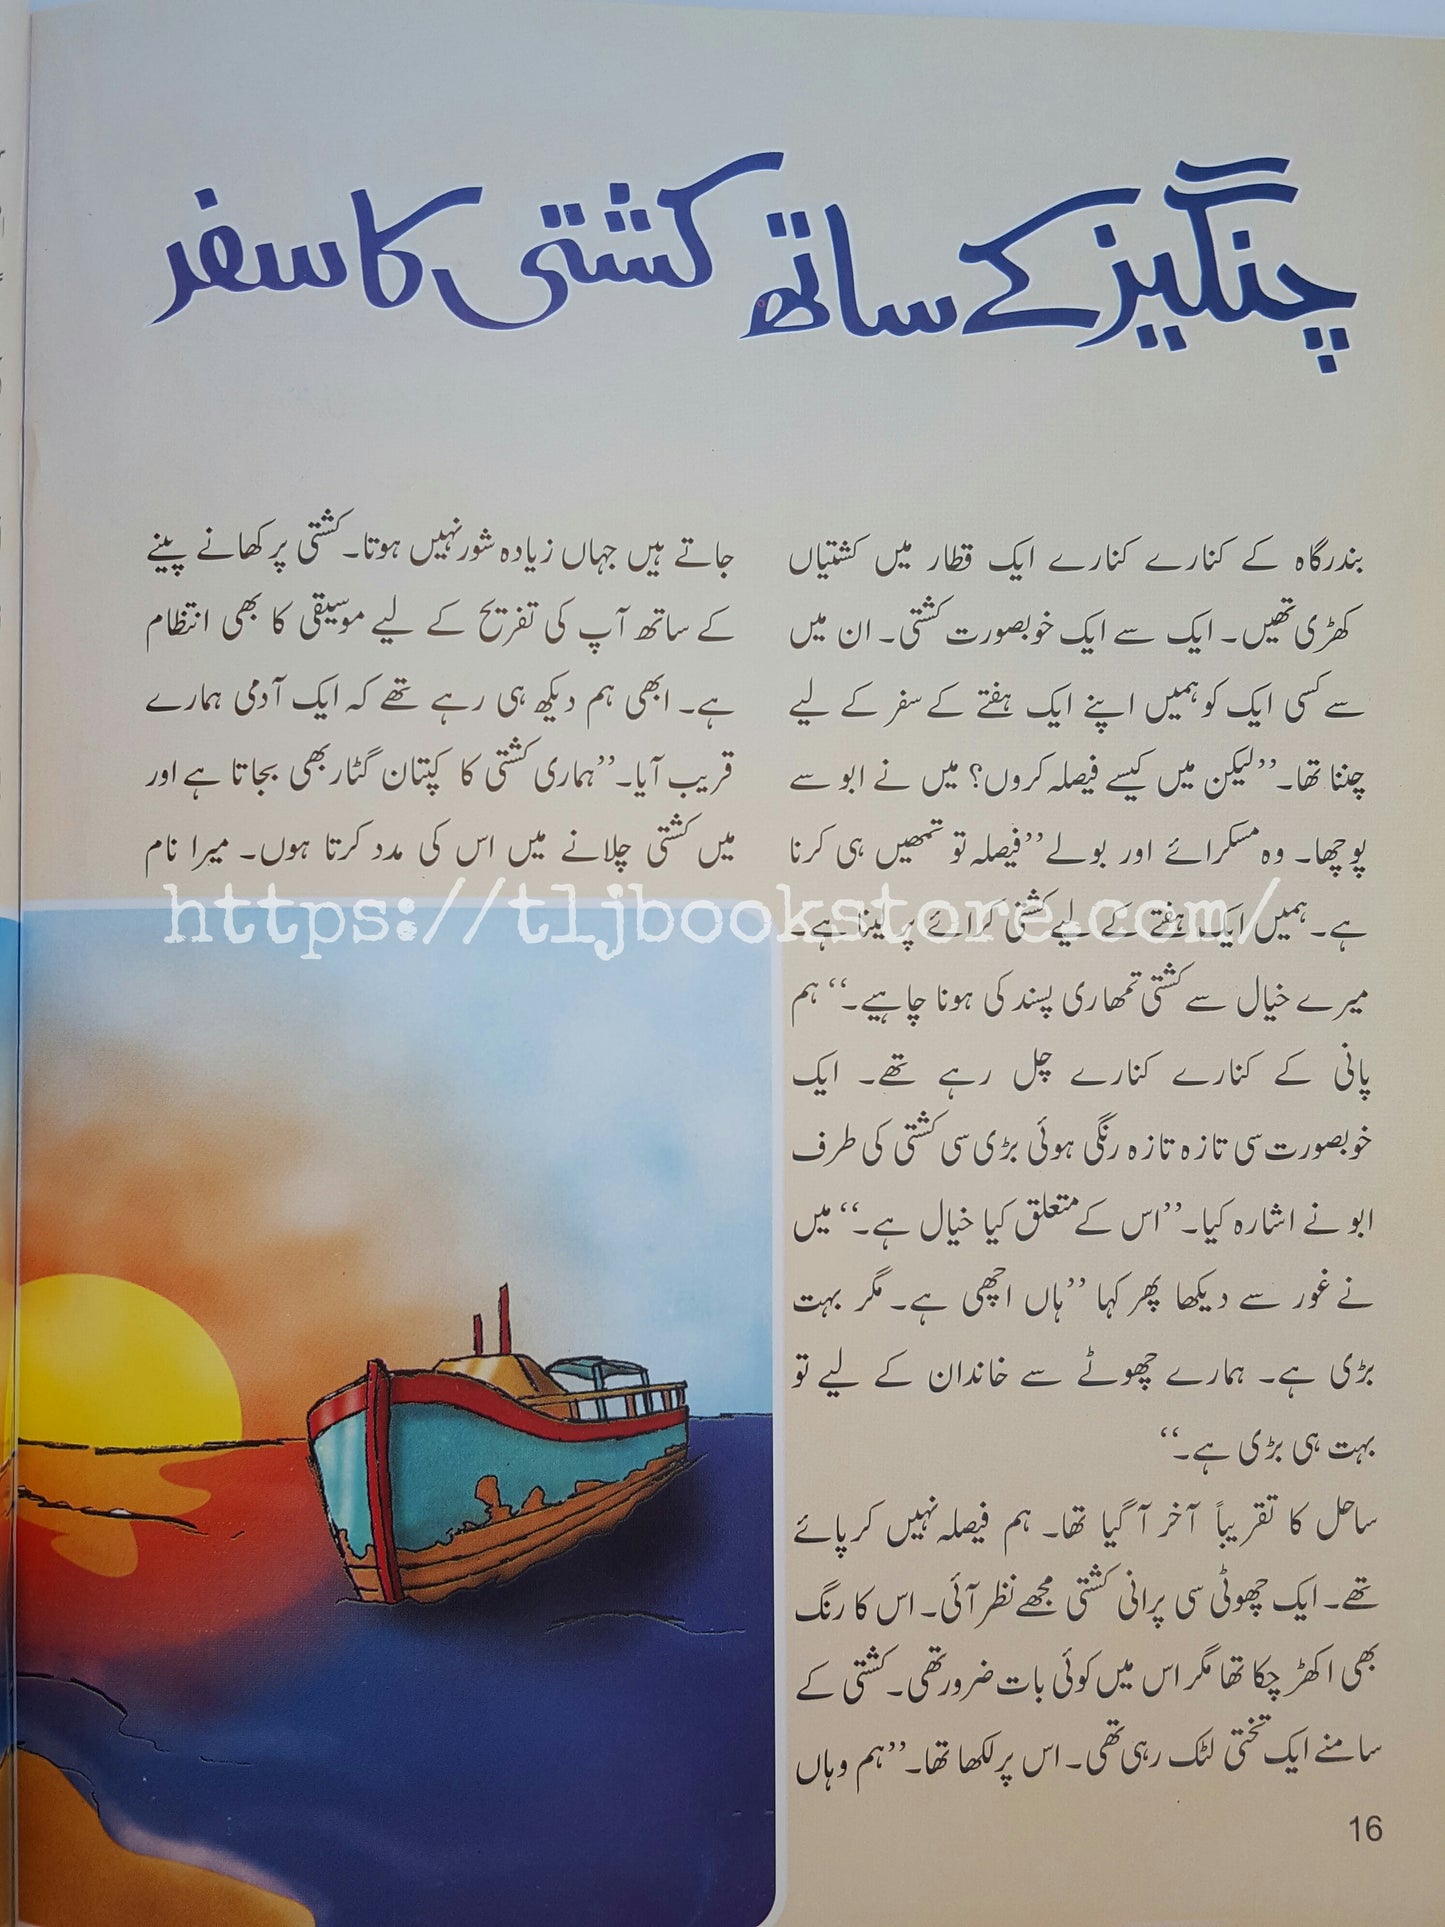 چنگیز کے ساتھ کشتی کا سفر
بندرگاہ کے کنارے کنارے ایک قطار میں کشتیاں
کھڑی تھیں۔ ایک سے ایک خوبصورت کشتی۔ ان میں
سے کسی ایک کو ہمیں اپنے ایک ہفتے کے سفر کے لیے
چننا تھا۔ ’’لیکن میں کیسے فیصلہ کروں؟ میں نے ابو سے
پوچھا۔ وہ مسکرائے اور بولے ’’فیصلہ تو تمھیں ہی کرنا
ہے۔ ہمیں ایک ہفتے کے لیے کشتی کرائے پر لینا ہے۔
میرے خیال سے کشتی تمھاری پسند کی ہونا چاہیے۔‘‘ ہم
پانی کے کنارے کنارے چل رہے تھے۔ ایک
خوبصورت سی تازہ تازہ رنگی ہوئی بڑی سی کشتی کی طرف
ابو نے اشارہ کیا۔ ’’اس کے متعلق کیا خیال ہے۔‘‘ میں
نے غور سے دیکھا پھر کہا ’’ہاں اچھی ہے۔ مگر بہت
بڑی ہے۔ ہمارے چھوٹے سے خاندان کے لیے تو
بہت ہی بڑی ہے۔‘‘
ساحل کا تقریباً آخر آ گیا تھا۔ ہم فیصلہ نہیں کر پائے
تھے۔ ایک چھوٹی سی پرانی کشتی مجھے نظر آئی۔ اس کا رنگ
بھی اکھڑ چکا تھا مگر اس میں کوئی بات ضرور تھی۔ کشتی کے
سامنے ایک تختی لٹک رہی تھی۔ اس پر لکھا تھا۔ ’’ہم وہاں
جاتے ہیں جہاں زیادہ شور نہیں ہوتا۔ کشتی پر کھانے پینے
کے ساتھ آپ کی تفریح کے لیے موسیقی کا بھی انتظام
ہے۔ ابھی ہم دیکھ ہی رہے تھے کہ ایک آدمی ہمارے
قریب آیا۔ ’’ہماری کشتی کا کپتان گٹار بھی بجاتا ہے اور
میں کشتی چلانے میں اس کی مدد کرتا ہوں۔ میرا نام
https://tljbookstore.com/
16